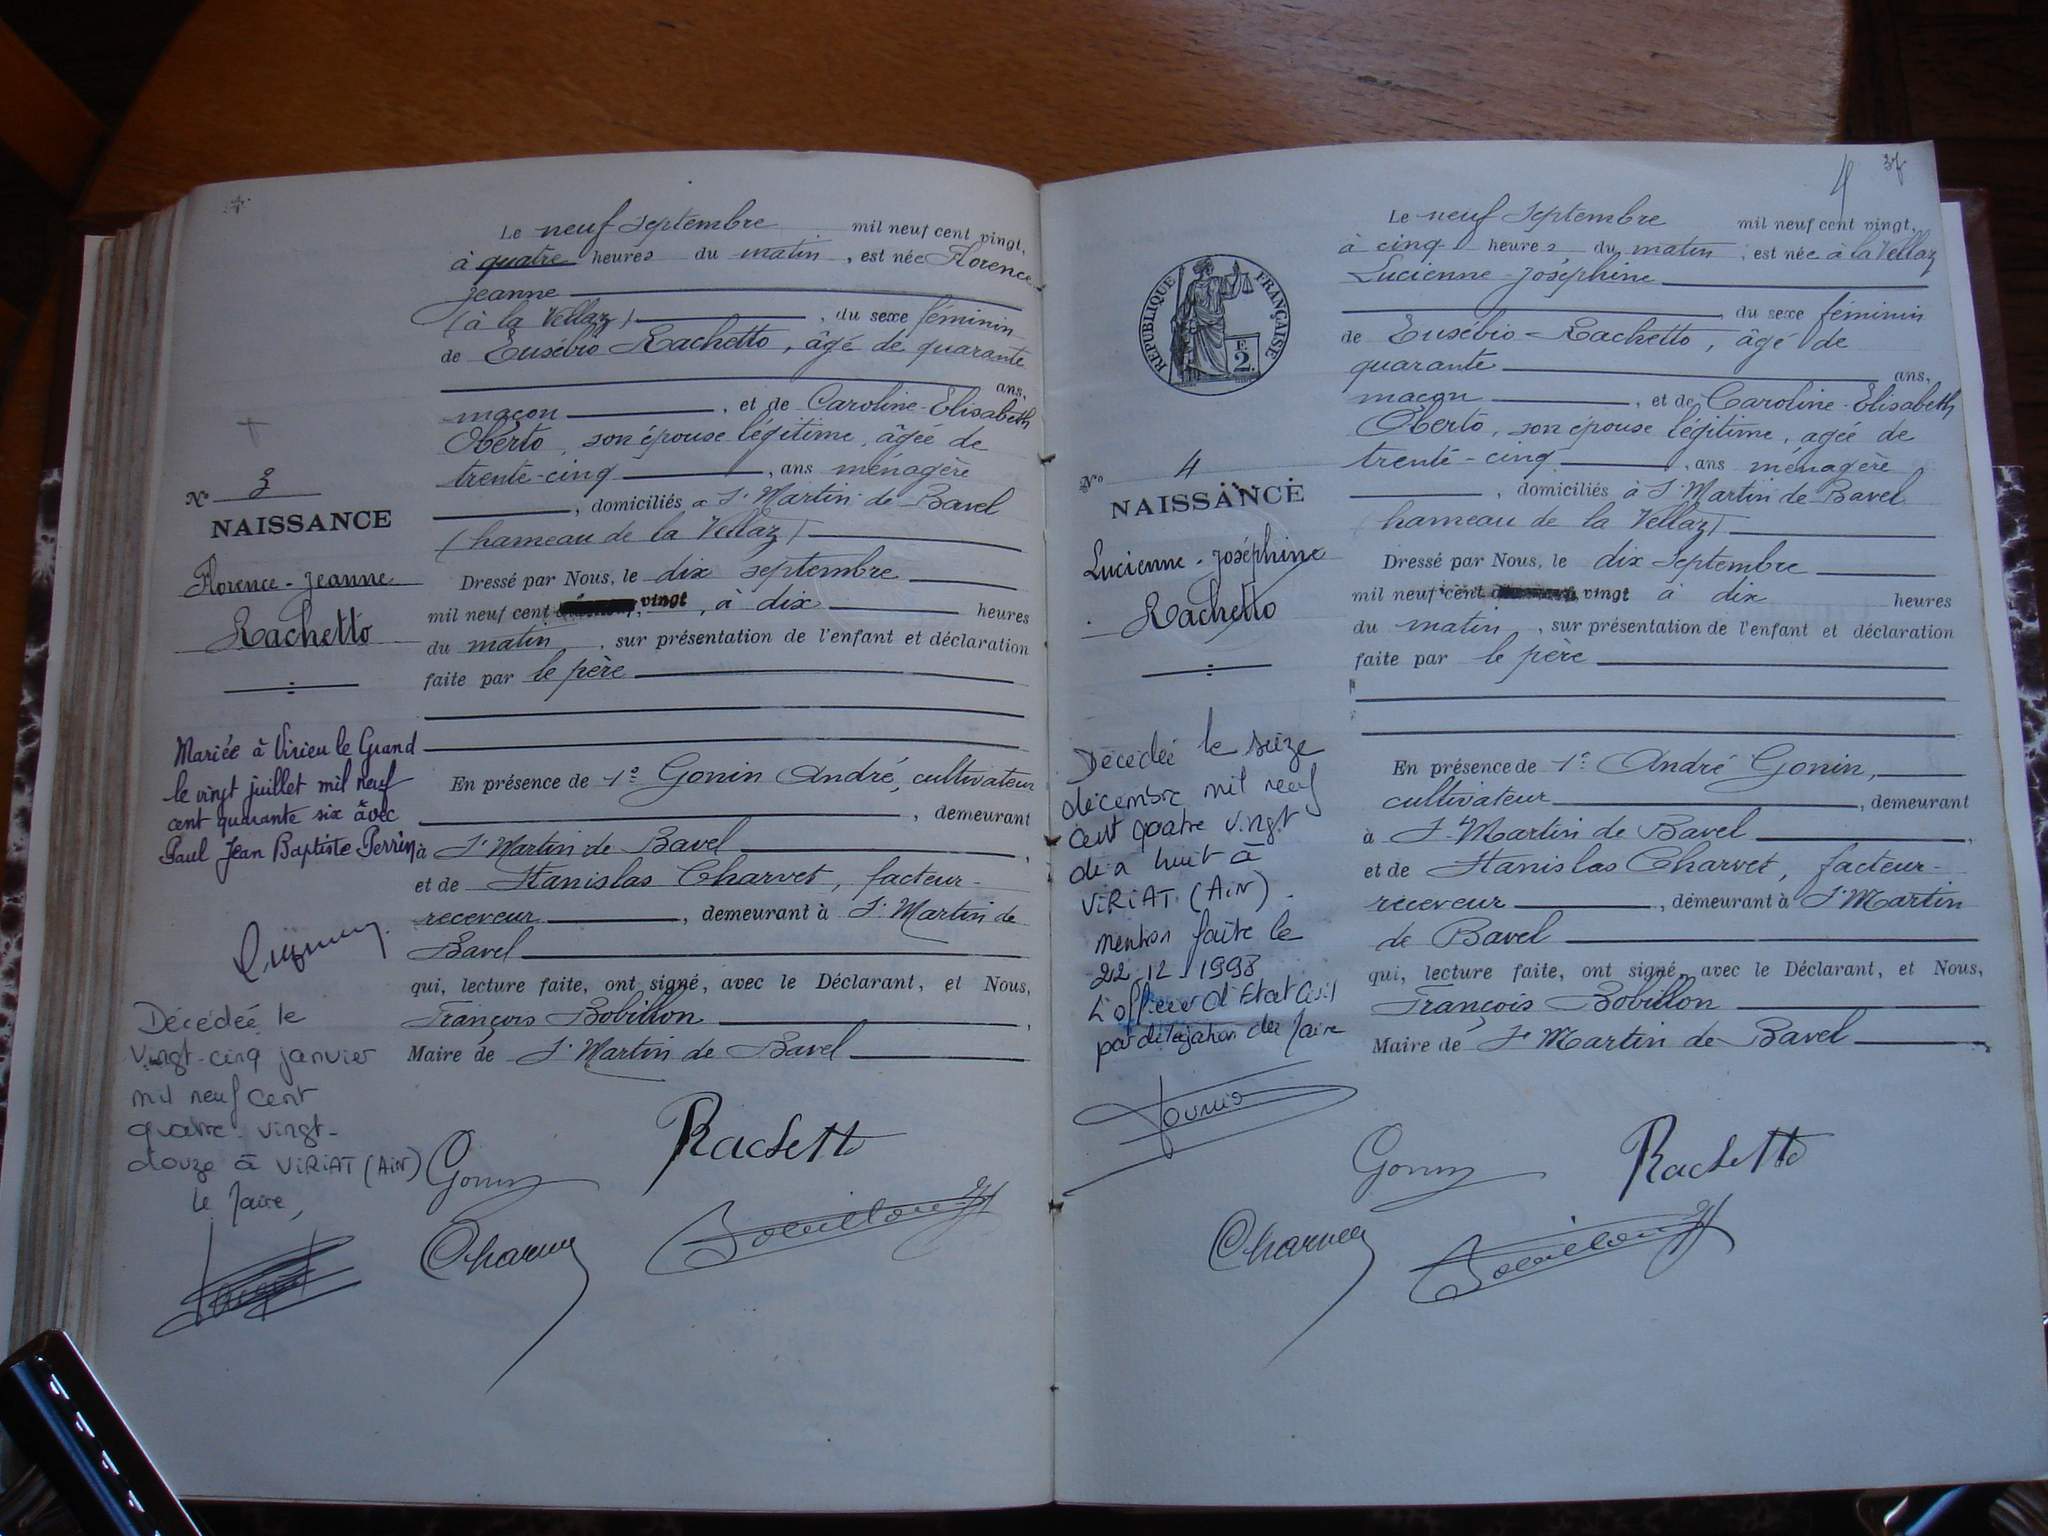 Le neuf septembre mil neuf cent vingt,
à quatre heures du matin, est née Florence
Jeanne
(à la Vellaz), du sexe féminin
de Eusébio Rachetto, âgé de quarante
ans,
maçon, et de Caroline-Elisabeth
Oberto, son épouse légitime, âgée de
trente-cinq, ans ménagère
, domiciliés à St Martin-de-Bavel
(hameau de la Vellaz)
Dressé par Nous, le dix septembre
mil neuf cent vingt, à dix heures
du matin, sur présentation de l'enfant et déclaration
faite par le père
En présence de 1º Gonin André, cultivateur
, demeurant
à St Martin de Bavel,
et de Stanislas Charvet, facteur-
receveur, demeurant à St Martin de
Bavel
qui, lecture faite, ont signé, avec le Déclarant, et Nous,
François Bobillon,
Maire de St Martin de Bavel
Nº 3
NAISSANCE
Florence-Jeanne
Rachetto
Mariée à Virieu le Grand
le vingt juillet mil neuf
cent quarante six avec
Paul Jean Baptiste Perrin
Décédée le
vingt-cinq janvier
mil neuf cent
quatre-vingt-
douze à VIRIAT (AIN)
le Maire,
Gonin
Rachetto
Charvet
Bobillon
4
37
Le neuf septembre mil neuf cent vingt,
à cinq heures du matin, est née à la Vellaz
Lucienne-Joséphine
, du sexe féminin
de Eusébio-Rachetto, âgé de
quarante ans,
maçon, et de Caroline-Elisabeth
Oberto, son épouse légitime, agée de
trente-cinq, ans ménagère
, domiciliés à St Martin de Bavel
(hameau de la Vellaz)
Dressé par Nous, le dix septembre
mil neuf cent vingt à dix heures
du matin, sur présentation de l'enfant et déclaration
faite par le père
En présence de 1º André Gonin,
cultivateur, demeurant
à St Martin de Bavel,
et de Stanislas Charvet, facteur-
receveur, demeurant à St Martin
de Bavel
qui, lecture faite, ont signé, avec le Déclarant, et Nous,
François Bobillon
Maire de St Martin de Bavel
REPUBLIQUE FRANÇAISE
2 F.
Nº 4
NAISSANCE
Lucienne-Joséphine
Rachetto
Décédée le seize
décembre mil neuf
cent quatre vingt
dix huit à
VIRIAT (AIN).
mention faite le
22-12-1998
L'officier d'Etat Civil
par délégation du Maire
Gonin
Rachetto
Charvet
Bobillon